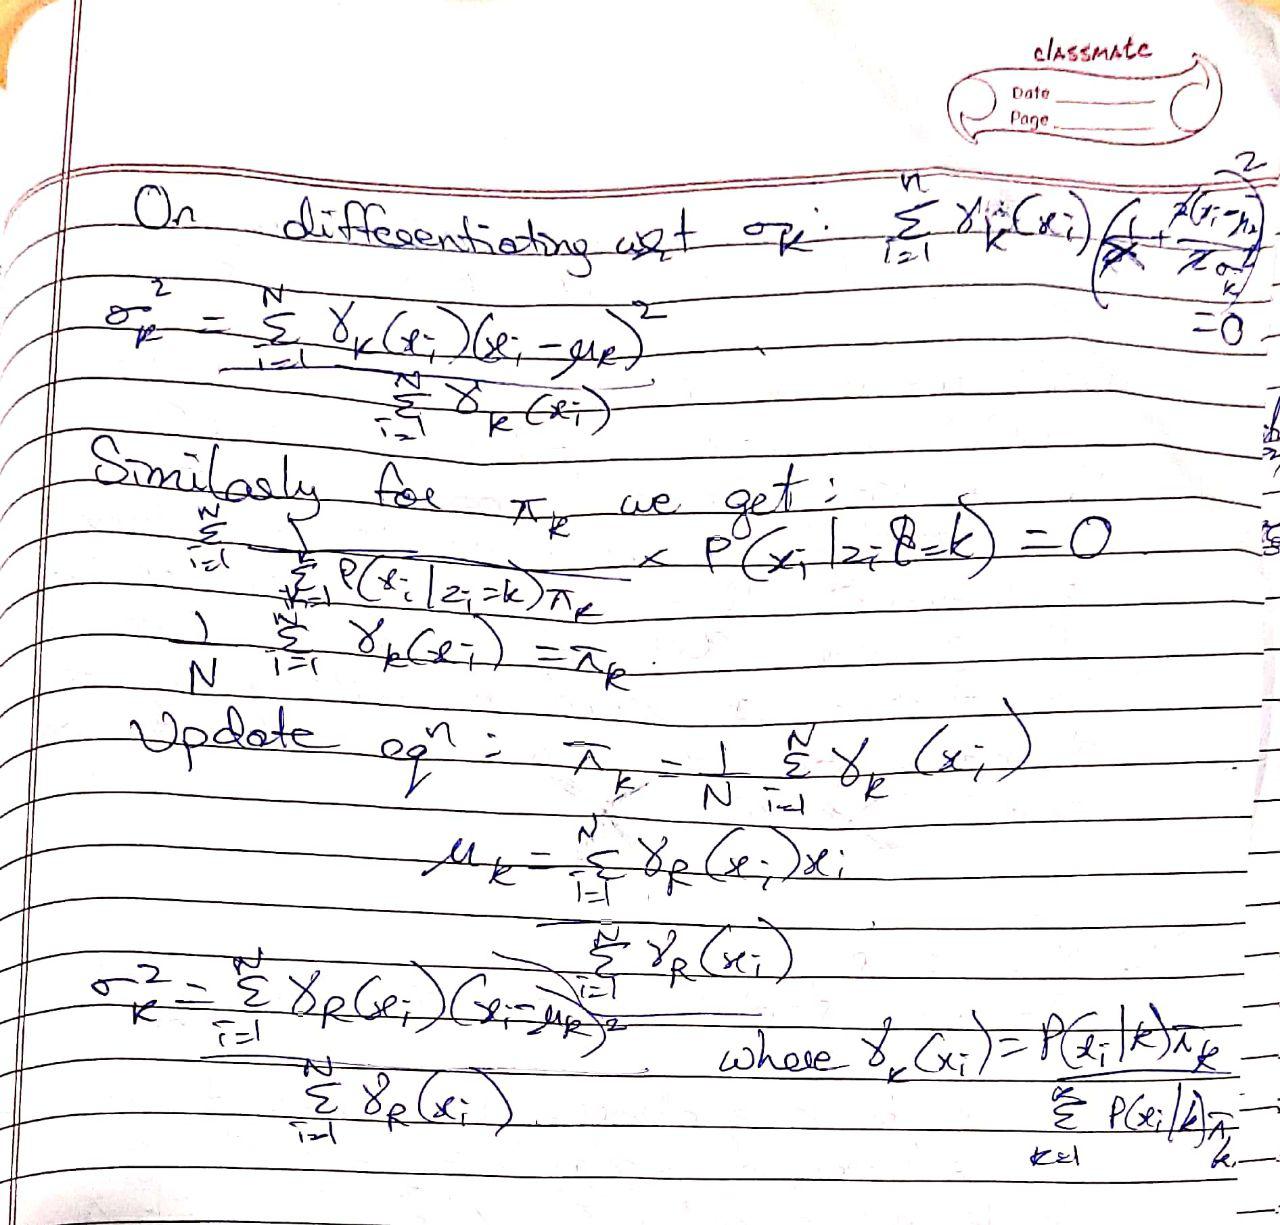 classmate
Date
Page
On differentiating wrt σₖ: Σᵢ₌₁ⁿ γₖ(xᵢ) (1/ + (xᵢ-μₖ)²/σₖ²) = 0
σₖ² = Σᵢ₌₁ᴺ γₖ(xᵢ)(xᵢ-μₖ)² / Σᵢ₌₁ᴺ γₖ(xᵢ)
Similarly for πₖ we get:
Σᵢ₌₁ᴺ 1 / Σₖ₌₁ P(xᵢ|zᵢ=k)πₖ × P(xᵢ|zᵢ=k) = 0
1/N Σᵢ₌₁ᴺ γₖ(xᵢ) = πₖ.
Update eqⁿ: πₖ = 1/N Σᵢ₌₁ᴺ γₖ(xᵢ)
μₖ = Σᵢ₌₁ᴺ γₖ(xᵢ)xᵢ / Σᵢ₌₁ᴺ γₖ(xᵢ)
σₖ² = Σᵢ₌₁ᴺ γₖ(xᵢ)(xᵢ-μₖ)² / Σᵢ₌₁ᴺ γₖ(xᵢ)
where γₖ(xᵢ) = P(xᵢ|k)πₖ / Σₖ₌₁ᴷ P(xᵢ|k)πₖ